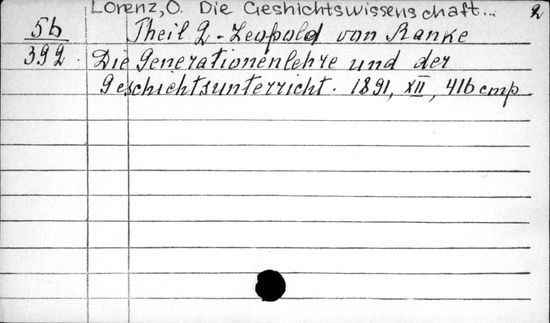 Lorenz, O. Die Geshichtswissenschaft... 2
5b Theil 2 - Leopold von Ranke
392. Die Generationenlehre und der
Geschichtsunterricht. 1891, XII, 416 cmp.